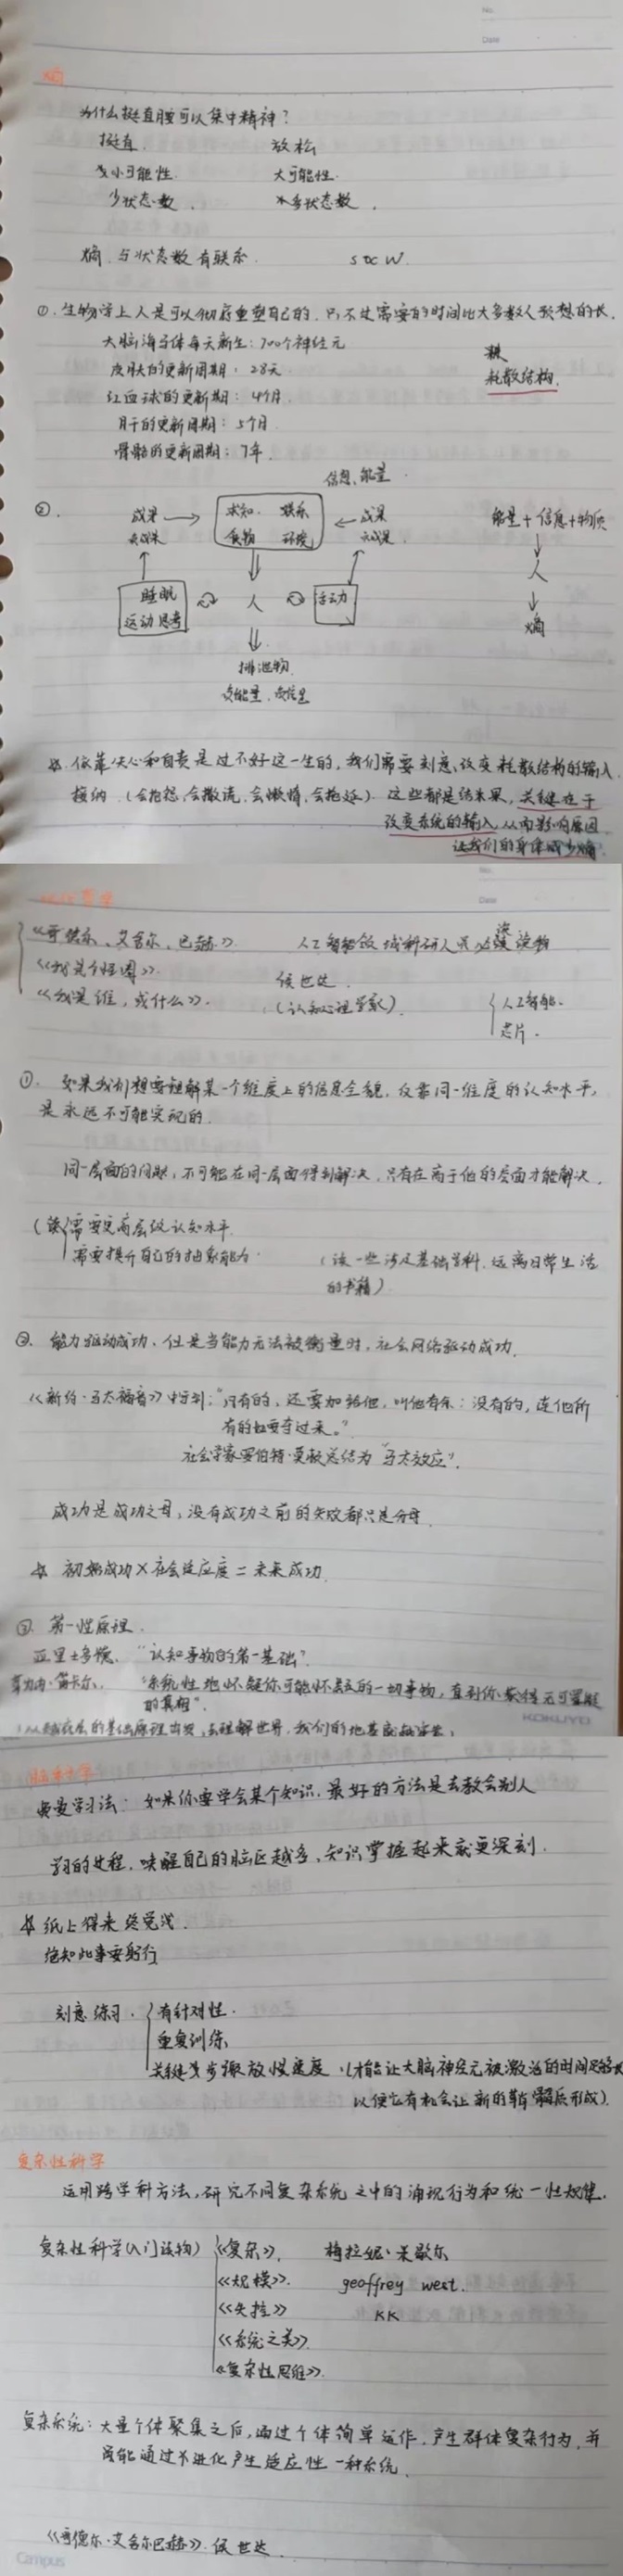 No.
Date
熵
为什么挺直腰可以集中精神?
挺直. 放松
变小可能性. 大可能性.
少状态数. 多状态数.
熵 与状态数有联系. S∝W.
①. 生物学上人是可以彻底重塑自己的. 只不过需要的时间比大多数人预想的长.
大脑海马体每天新生: 700个神经元
皮肤的更新周期: 28天. 耗
红血球的更新周期: 4个月. 耗散结构.
肝的更新周期: 5个月
骨骼的更新周期: 7年.
信息、能量.
②. 成果 → 求知. 联系 ← 成果 能量+信息+物质
食物 环境
睡眠 人 活动 人
运动思考 熵
排泄物
废能量. 废信息
依靠决心和自责是过不好这一生的, 我们需要刻意、改变耗散结构的输入.
接纳. (会抱怨, 会撒谎, 会懒惰, 会拖延). 这些都是结果, 关键在于
改变系统的输入 从而影响原因
让我们的身体减少熵.
No.
Date
《哥德尔、艾舍尔、巴赫》. 人工智能领域新研人员必读读物
《我是个怪圈》. 侯世达.
《我是谁, 或什么》. (认知心理学家). 人工智能.
芯片.
①. 如果我们想要理解某一个维度上的信息全貌, 仅靠同一维度的认知水平,
是永远不可能实现的.
同一层面的问题, 不可能在同一层面得到解决, 只有在高于他的层面才能解决.
(读 需要更高层级认知水平.
需要提升自己的抽象能力. (读一些涉及基础学科. 远离日常生活
的书籍)
②. 能力驱动成功. 但是当能力无法被衡量时, 社会网络驱动成功.
《新约·马太福音》中写到: "凡有的, 还要加给他, 叫他有余: 没有的, 连他所
有的也要夺过来。"
社会学家罗伯特·莫顿总结为 "马太效应".
成功是成功之母, 没有成功之前的失败都只是分母.
初始成功×社会适应度=未来成功.
③. 第一性原理.
亚里士多德. "认知事物的第一基础".
笛卡尔. "系统性地怀疑你可能怀疑的一切事物, 直到你获得无可置疑
的真相".
(从最底层的基础原理出发, 去理解世界, 我们的地基
KOKUYO
脑科学
费曼学习法: 如果你要学会某个知识. 最好的方法是去教会别人
学习的过程, 唤醒自己的脑区越多、知识掌握起来就更深刻.
纸上得来终觉浅.
绝知此事要躬行
刻意练习. 有针对性.
重复训练
关键步骤放慢速度. (才能让大脑神经元被激活的时间足够长
以便它有机会让新的髓鞘质形成).
复杂性科学
运用跨学科方法, 研究不同复杂系统之中的涌现行为和统一性规律.
复杂性科学(入门读物) 《复杂》. 梅拉妮·米歇尔
《规模》. geoffrey west.
《失控》 KK
《系统之美》.
《复杂性思维》.
复杂系统: 大量个体聚集之后, 通过个体简单运作, 产生群体复杂行为, 并
且能通过进化产生适应性一种系统.
《哥德尔·艾舍尔巴赫》. 侯世达.
Campus